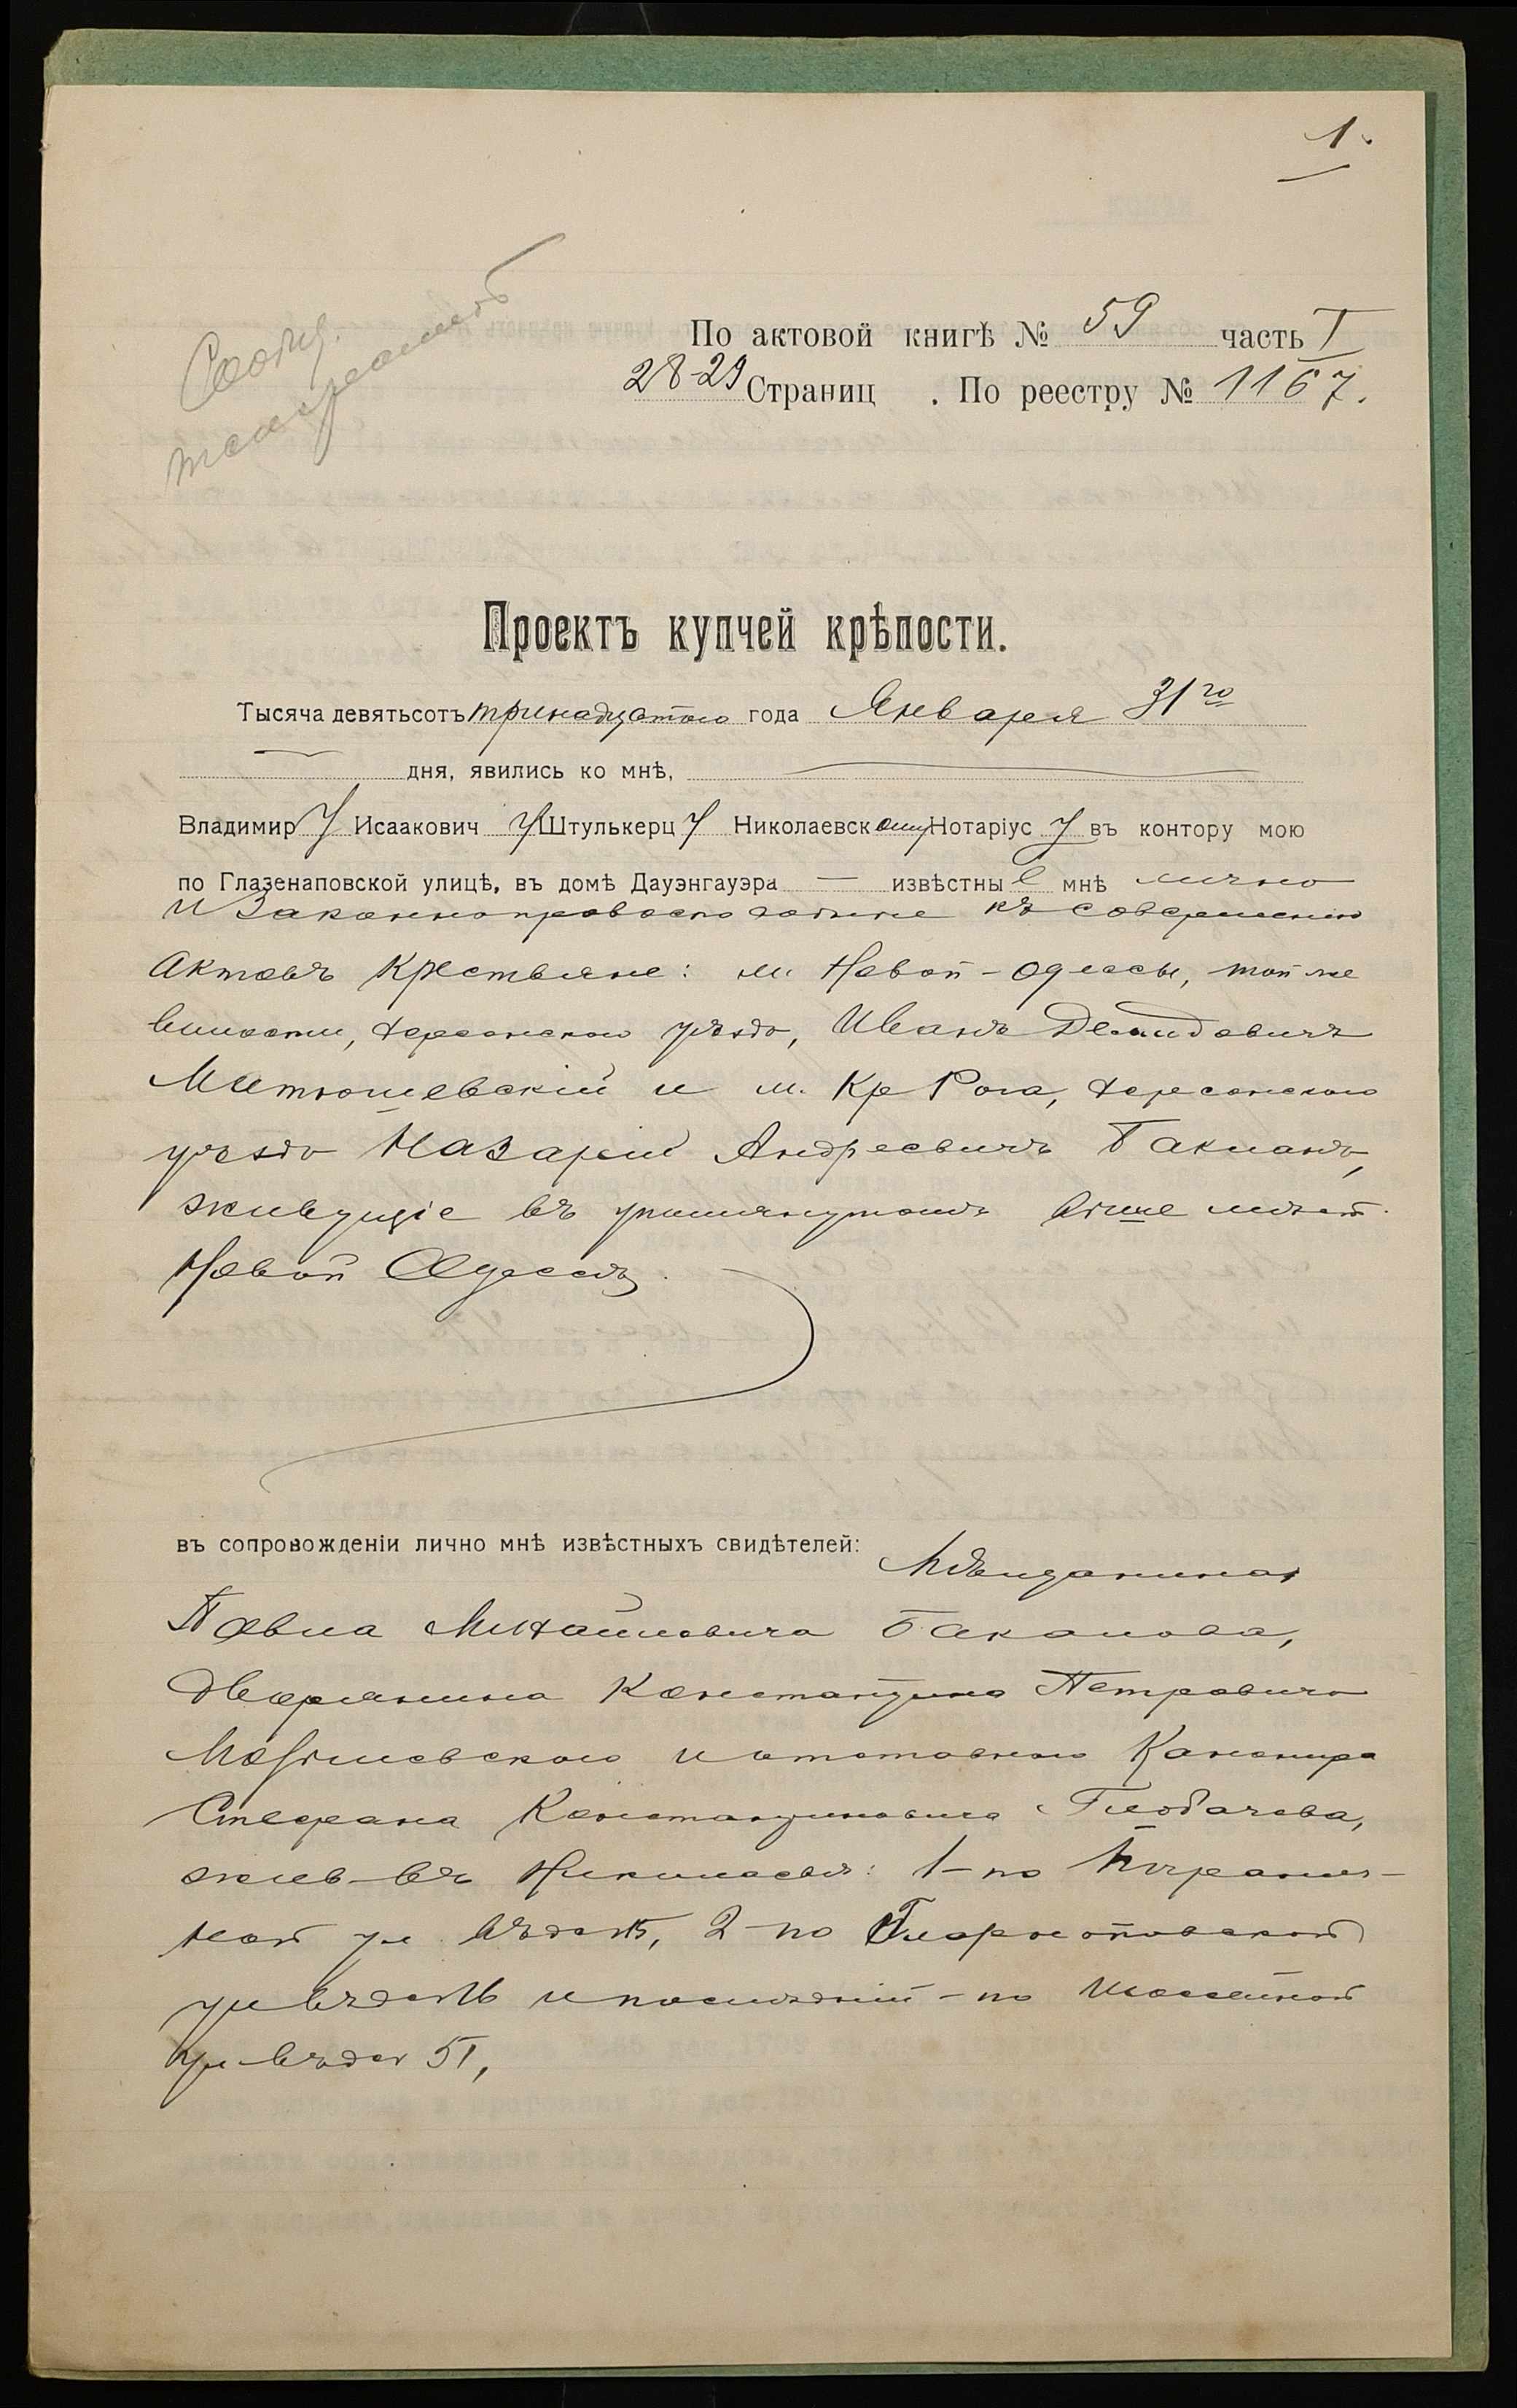 1.
По актовой книгѣ № 59 часть I
28-29 Страниц . По реестру № 1167.
Проектъ купчей крѣпости.
Тысяча девятьсотъ тринадцатого года Января 31го
дня, явились ко мнѣ,
Владимиру Исаакович у Штулькерцу Николаевскому Нотаріусу въ контору мою
по Глазенаповской улицѣ, въ домѣ Дауэнгауэра — извѣстные мнѣ лично
и Законноправоспособные къ совершенію
Актовъ Крестьяне: м. Новой-Одессы, той же
волости, Херсонского уѣзда, Иванъ Демидовичъ
и м. Кр Рога, Херсонского
уѣзда Назарій Андреевичъ Бакланъ,
живущіе въ упомянутомъ выше мѣст.
Новой Одессѣ.
въ сопровожденіи лично мнѣ извѣстныхъ свидѣтелей: Мѣщанина
Павла Михайловича Бакалова,
Дворянина Константина Петровича
и отставного Канонира
Стефана Константиновича
жив-въ Николаевѣ: 1-по
ной ул. въ д 2-по
ул въ д и послѣдній-по
ул въ д 51,